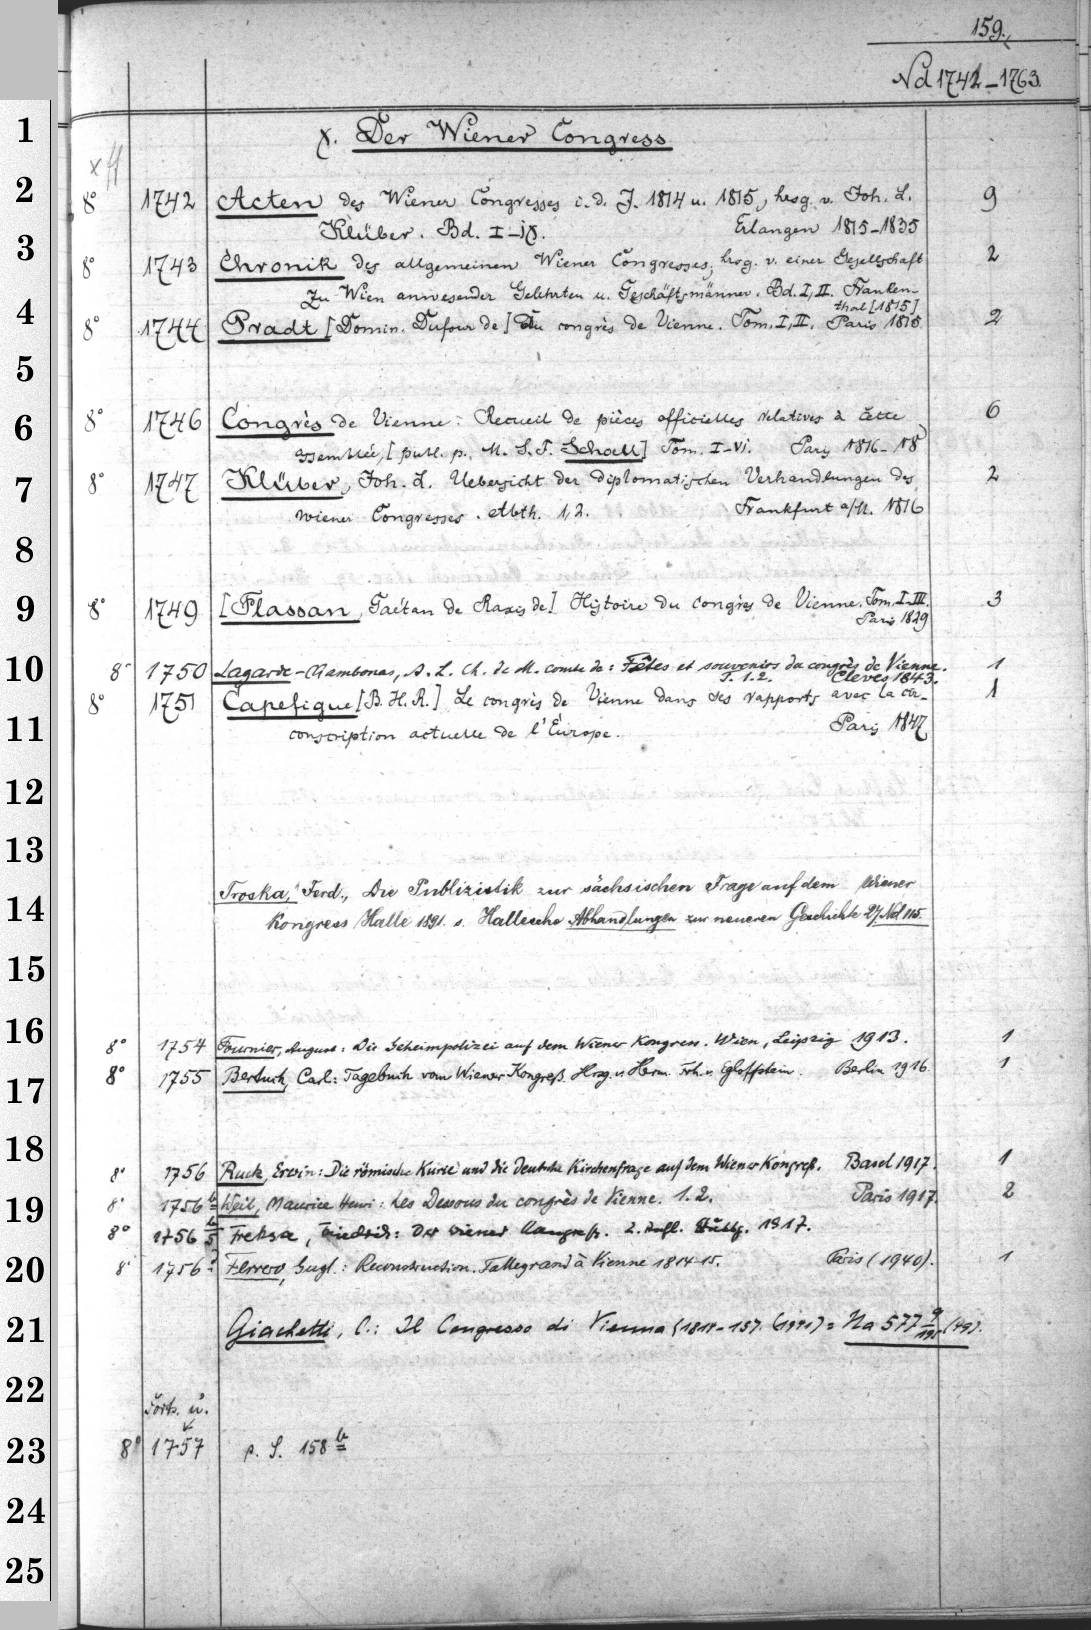 159.
Nd 1742-1763.
γ. Der Wiener Congress
8° 1742 Acten des Wiener Congresses i. d. J. 1814 u. 1815, hrsg. v. Joh. L. 9
Klüber. Bd. I-IX. Erlangen 1815-1835
8° 1743 Chronik des allgemeinen Wiener Congresses, hrsg. v. einer Gesellschaft 2
zu Wien anwesender Gelehrten u. Geschäftsmänner. Bd. I, II. Franken-
thal [1815]
8° 1744 Pradt [Domin. Dufour de] Du congrès de Vienne. Tom. I, II. Paris 1815 2
8° 1746 Congrès de Vienne: Recueil de pièces officielles relatives à cette 6
assemblée, [publ. p. M. S. F. Schoell] Tom. I-VI. Paris 1816-18
8° 1747 Klüber, Joh. L. Uebersicht der diplomatischen Verhandlungen des 2
Wiener Congresses. Abth. 1, 2. Frankfurt a/M. 1816
8° 1749 [Flassan, Gaétan de Raxis de] Histoire du congrès de Vienne. Tom. I-III. 3
Paris 1829
8° 1750 Lagarde-Chambonas, A. L. Ch. de M. comte de: Fêtes et souvenirs du congrès de Vienne. 1
T. 1.2. Clèves 1843.
8° 1751 Capefigue [B. H. R.] Le congrès de Vienne dans ses rapports avec la cir- 1
conscription actuelle de l'Europe. Paris 1847
Troska, Ferd., Die Publizistik zur sächsischen Frage auf dem Wiener
Kongress Halle 1891. s. Hallesche Abhandlungen zur neueren Geschichte 27 Nd 115.
8° 1754 Fournier, August: Die Geheimpolizei auf dem Wiener Kongress. Wien, Leipzig 1913. 1
8° 1755 Bertuch, Carl: Tagebuch vom Wiener Kongreß. Hrsg. v. Herm. Frh. v. Egloffstein. Berlin 1916 1
8° 1756 Ruck, Erwin: Die römische Kurie und die deutsche Kirchenfrage auf dem Wiener Kongreß. Basel 1917. 1
8° 1756 Weil, Maurice Henri: Les Dessous du congrès de Vienne. 1. 2. Paris 1917. 2
8° 1756 Freksa, Friedrich: Der Wiener Kongreß. 2. Aufl. Stuttg. 1917.
8° 1756 Ferrero, Gugl.: Reconstruction. Talleyrand à Vienne 1814-15. Paris (1940). 1
Giachetti, C.: Il Congresso di Vienna = Na 577
Forts. u.
8° 1757 p. S. 158 b
1
2
3
4
5
6
7
8
9
10
11
12
13
14
15
16
17
18
19
20
21
22
23
24
25